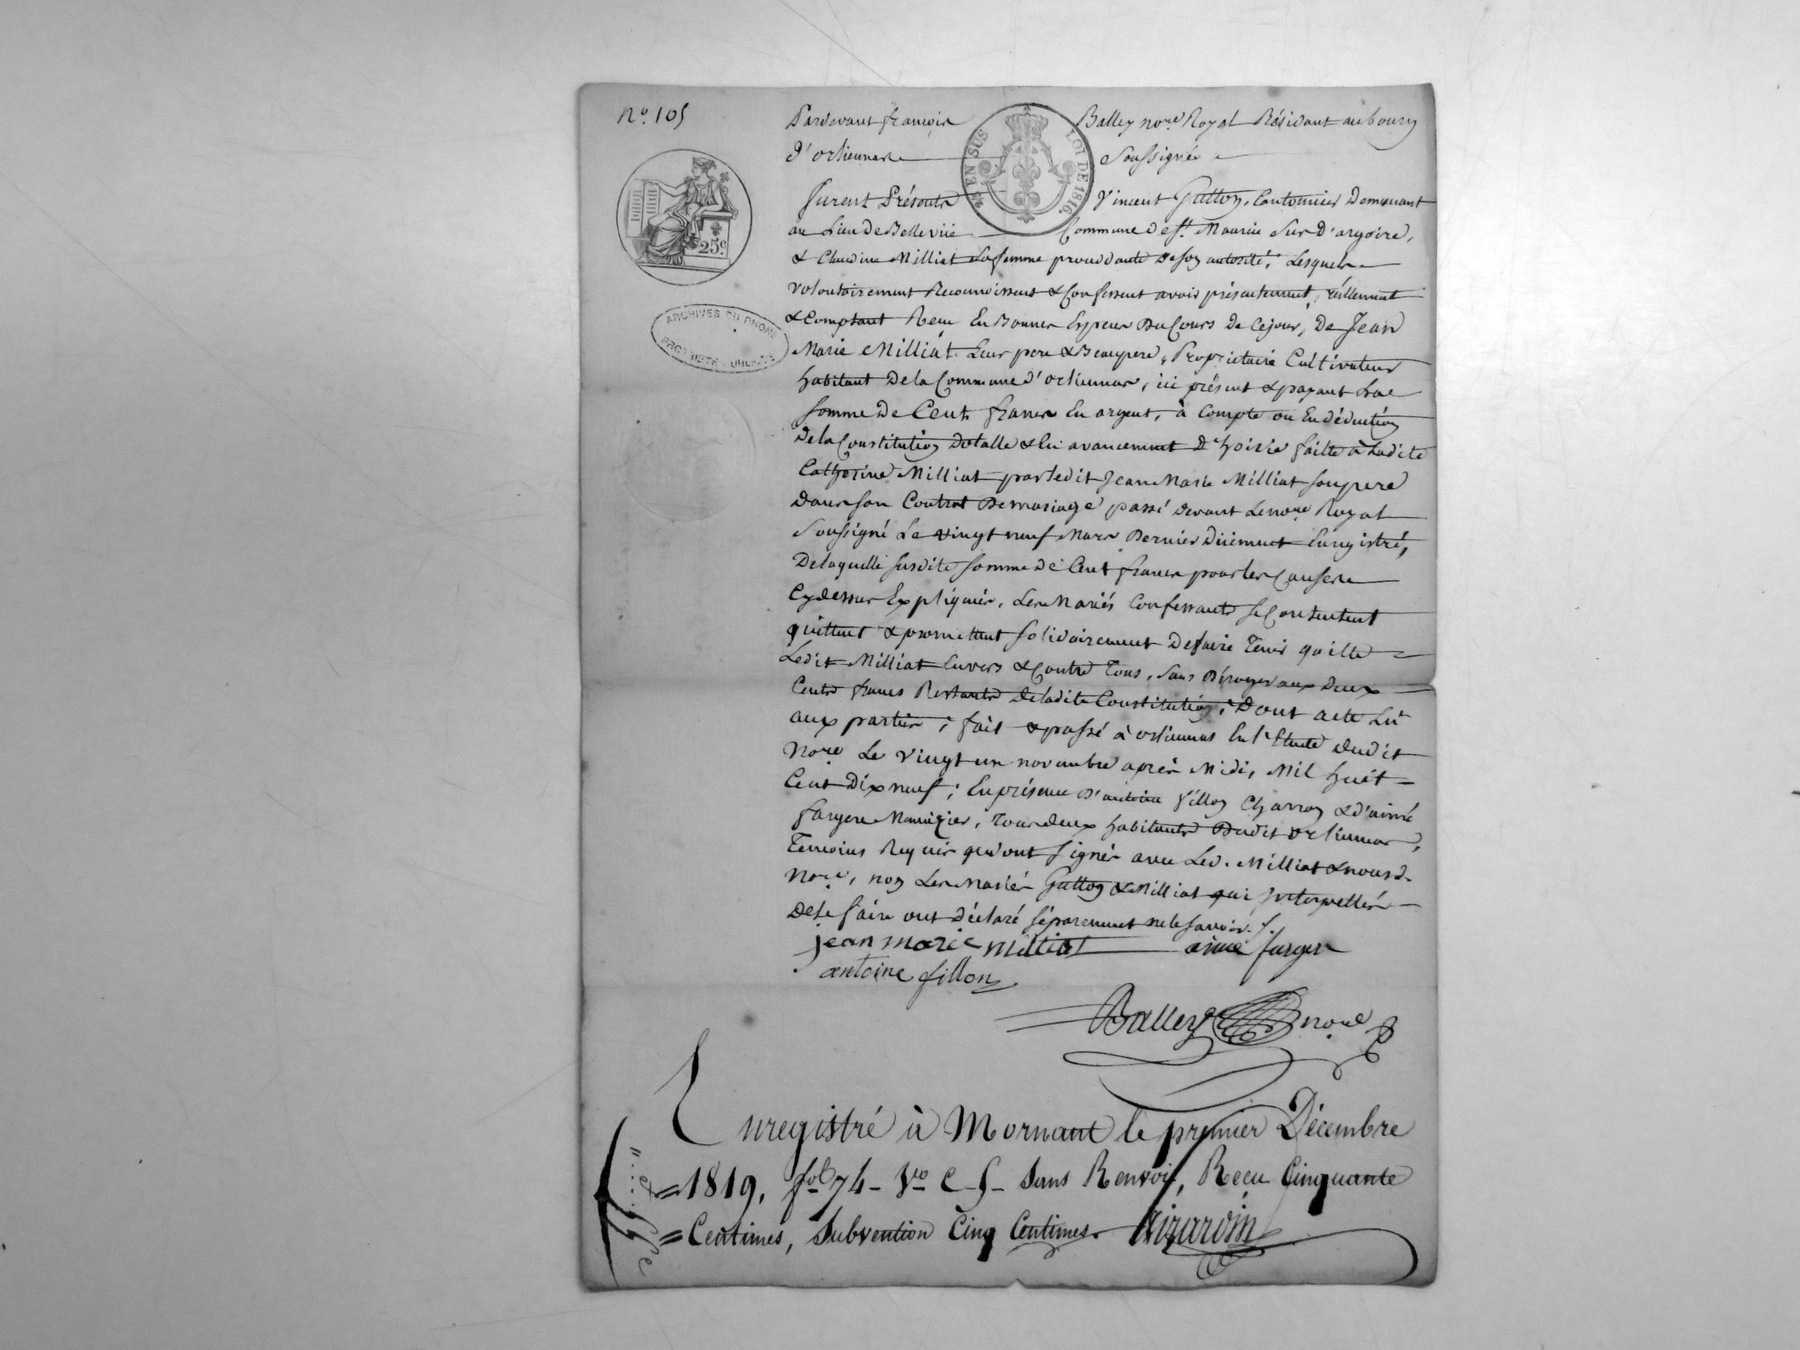 nº. 105
Pardevant françois Balley nore Royal Résidant au bourg
d'orliennas soussigné
EN SUS LOI DE 1816.
furent Présents Vincent Gutton, Cantonnier Demeurant
au Lieu De Bellevüe Commune de St. Maurice Sur D'argoire,
25c.
& Claudine Milliat Sa femme procédante de son autorité, Lesquels
volontairement Reconnoissent & Confessent avoir présentement, réellement
& Comptant Reçu En Bonnes Espèces Du Cours de Cejour, De Jean
ARCHIVES DU RHONE
PROPRIETE PUBLIQUE
Marie Milliat Leur pere & Beaupere, Propriétaire Cultivateur
habitant De la Commune d'orliennas, ici présent & payant La
somme De Cent francs En argent, à Compte ou En déduction
De la Constitution Dotalle & En avancement D'hoirie faitte à Ladite
Catherine Milliat par ledit Jean Marie Milliat son pere
Dans son Contrat De mariage passé devant Le nore Royal
Soussigné Le vingt neuf Mars Dernier Düement Enregistré,
De laquelle susdite somme de Cent francs pour les Causes
Cydessus Expliquées, Les Mariés Confessants se Contentent
quittent & promettent solidairement De faire Tenir quitte
Ledit Milliat Envers & Contre Tous, Sans Déroger aux Deux
Cents francs Restants De ladite Constitution; Dont acte Lû
aux parties; fait & passé à orliennas En l'Etude dudit
Nore Le vingt un novembre après Midi, Mil huit
Cent Dix neuf; En présence D'antoine fillon Charron & d'aimé
fargere Menuizier, Tous deux habitants Dudit orliennas,
Temoins Requis qui ont signés avec Led. Milliat & nousd.
Nore, non Les Mariés Gutton & Milliat qui Interpellés
De le faire ont Déclaré séparement ne le savoir./.
jean marie milliat aimé farger
antoine fillon
Balley nore
Enregistré à Mornant le premier Décembre
1819, fol. 74 Vo C 5 Sans Renvoi, Reçu Cinquante
Centimes, Subvention Cinq Centimes. Girardin